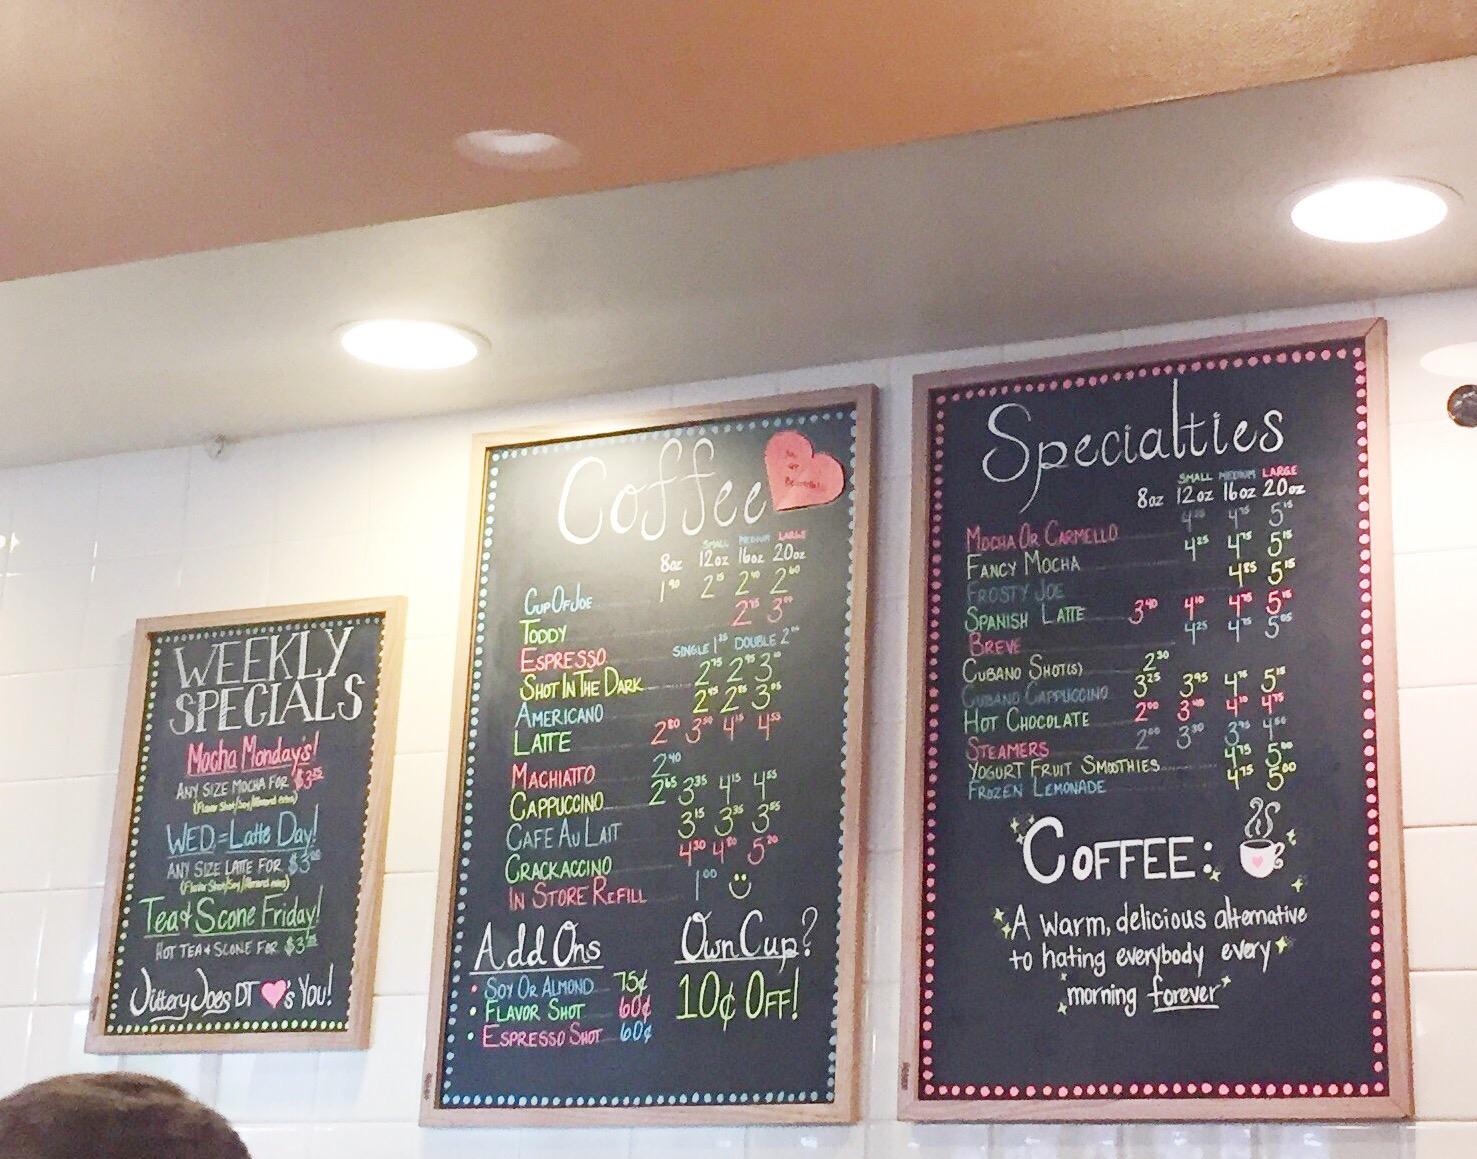 WEEKLY
SPECIALS
Mocha Monday's!
ANY SIZE MOCHA FOR
(Flavor Shot/Soy/Almond extra)
WED.=Latte Day!
ANY SIZE LATTE FOR
(Flavor Shot/Soy/Almond extra)
Tea & Scone Friday!
HOT TEA & SCONE FOR
Jittery Joes DT 's You!
Coffee
SMALL MEDIUM LARGE
8oz 12oz 16oz 20oz
CUP OF JOE 1⁹⁰ 2¹⁵ 2⁴⁰ 2⁶⁰
TODDY 2⁷⁵ 3⁰⁰
ESPRESSO SINGLE 1³⁵ DOUBLE
SHOT IN THE DARK 2⁷⁵ 2⁹⁵ 3¹⁰
AMERICANO 2⁸⁵
LATTE 2⁸⁰ 3⁵⁰ 4¹⁵ 4⁵⁵
MACHIATTO 2⁴⁰
CAPPUCCINO 2⁶⁵ 3³⁵ 4¹⁵ 4⁵⁵
CAFE AU LAIT 3¹⁵ 3³⁵ 3⁵⁵
CRACKACCINO 4³⁰ 4⁸⁰ 5²⁰
IN STORE REFILL 1⁰⁰
Add Ons
SOY OR ALMOND 75¢
FLAVOR SHOT 60¢
ESPRESSO SHOT 60¢
Own Cup?
10¢ OFF!
Specialties
SMALL MEDIUM LARGE
8oz 12oz 16oz 20oz
MOCHA OR CARMELLO 4⁷⁵ 5¹⁵
FANCY MOCHA 4²⁵ 4⁷⁵ 5¹⁵
FROSTY JOE 4⁸⁵ 5¹⁵
SPANISH LATTE 3⁴⁰ 4¹⁰ 4⁷⁵ 5¹⁵
BREVE 4²⁵ 4⁷⁵ 5⁰⁵
CUBANO SHOT(S) 2³⁰
CUBANO CAPPUCCINO 3²⁵ 3⁹⁵ 4⁷⁵ 5¹⁵
HOT CHOCOLATE 2⁰⁰ 3⁴⁰ 4¹⁰ 4⁷⁵
STEAMERS 2⁰⁰ 3³⁰ 3⁹⁵
YOGURT FRUIT SMOOTHIES 4⁷⁵ 5⁰⁰
FROZEN LEMONADE 4⁷⁵ 5⁰⁰
COFFEE:
A warm, delicious alternative
to hating everybody every
morning forever